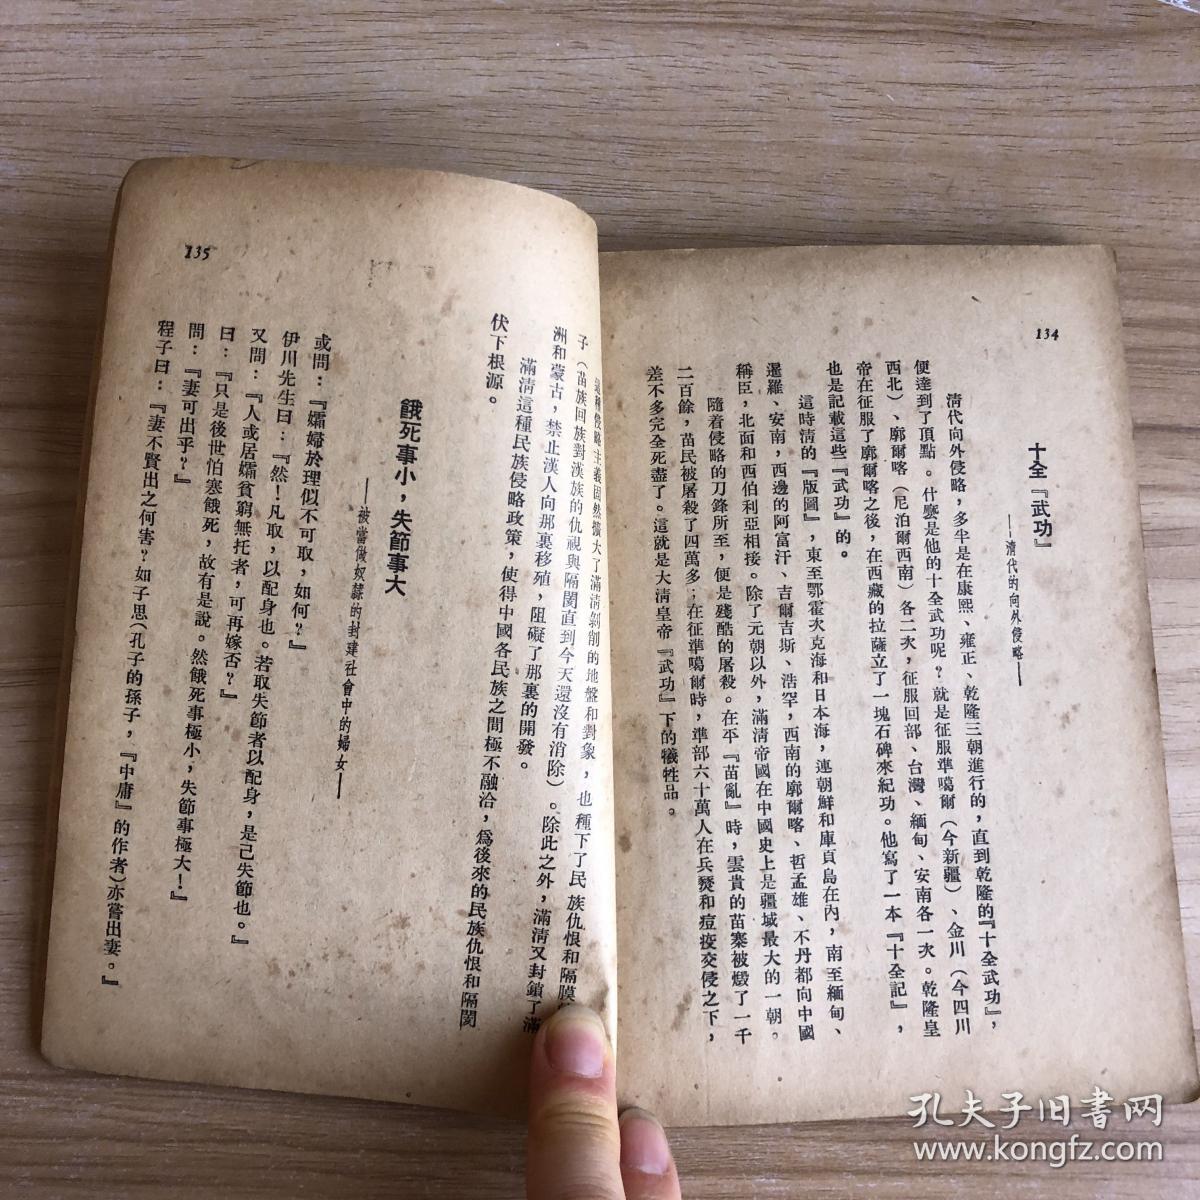 134
十全『武功』
——清代的向外侵略——
清代向外侵略，多半是在康熙、雍正、乾隆三朝進行的，直到乾隆的『十全武功』，
便達到了頂點。什麼是他的十全武功呢？就是征服準噶爾（今新疆）、金川（今四川
西北）、廓爾喀（尼泊爾西南）各二次，征服回部、台灣、緬甸、安南各一次。乾隆皇
帝在征服了廓爾喀之後，在西藏的拉薩立了一塊石碑來紀功。他寫了一本『十全記』，
也是記載這些『武功』的。
這時淸的『版圖』，東至鄂霍次克海和日本海，連朝鮮和庫頁島在內，南至緬甸、
暹羅、安南，西邊的阿富汗、吉爾吉斯、浩罕，西南的廓爾喀、哲孟雄、不丹都向中國
稱臣，北面和西伯利亞相接。除了元朝以外，滿淸帝國在中國史上是疆域最大的一朝。
隨着侵略的刀鋒所至，便是殘酷的屠殺。在平『苗亂』時，雲貴的苗寨被燬了一千
二百餘，苗民被屠殺了四萬多；在征準噶爾時，準部六十萬人在兵燹和痘疫交侵之下，
差不多完全死盡了。這就是大淸皇帝『武功』下的犧牲品。
這種侵略主義固然擴大了滿淸剝削的地盤和對象，也種下了民族仇恨和隔膜
子（苗族回族對漢族的仇視與隔閡直到今天還沒有消除）。除此之外，滿淸又封鎖了滿
洲和蒙古，禁止漢人向那裏移殖，阻礙了那裏的開發。
滿淸這種民族侵略政策，使得中國各民族之間極不融洽，爲後來的民族仇恨和隔閡
伏下根源。
餓死事小，失節事大
——被當做奴隸的封建社會中的婦女——
或問：『孀婦於理似不可取，如何？』
伊川先生曰：『然！凡取，以配身也。若取失節者以配身，是己失節也。』
又問：『人或居孀貧窮無托者，可再嫁否？』
曰：『只是後世怕寒餓死，故有是說。然餓死事極小，失節事極大！』
問：『妻可出乎？』
程子曰：『妻不賢出之何害？如子思（孔子的孫子，『中庸』的作者）亦嘗出妻。』
135
孔夫子旧書网
www.kongfz.com